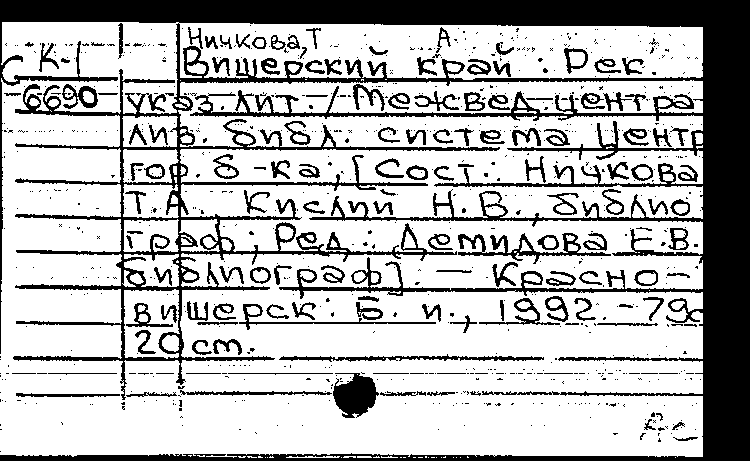 Ничкова, Т А
С К-1
Вишерский край : Рек.
6690 указ. лит. / Межвед. центра-
лиз. библ. система, Центр.
гор. б-ка; [Сост.: Ничкова
Т.А., Кислий Н.В., библио
граф; Ред.: Демидова Е.В.
библиограф]. — Красно-
вишерск: Б. и., 1992. - 79с
20 см.